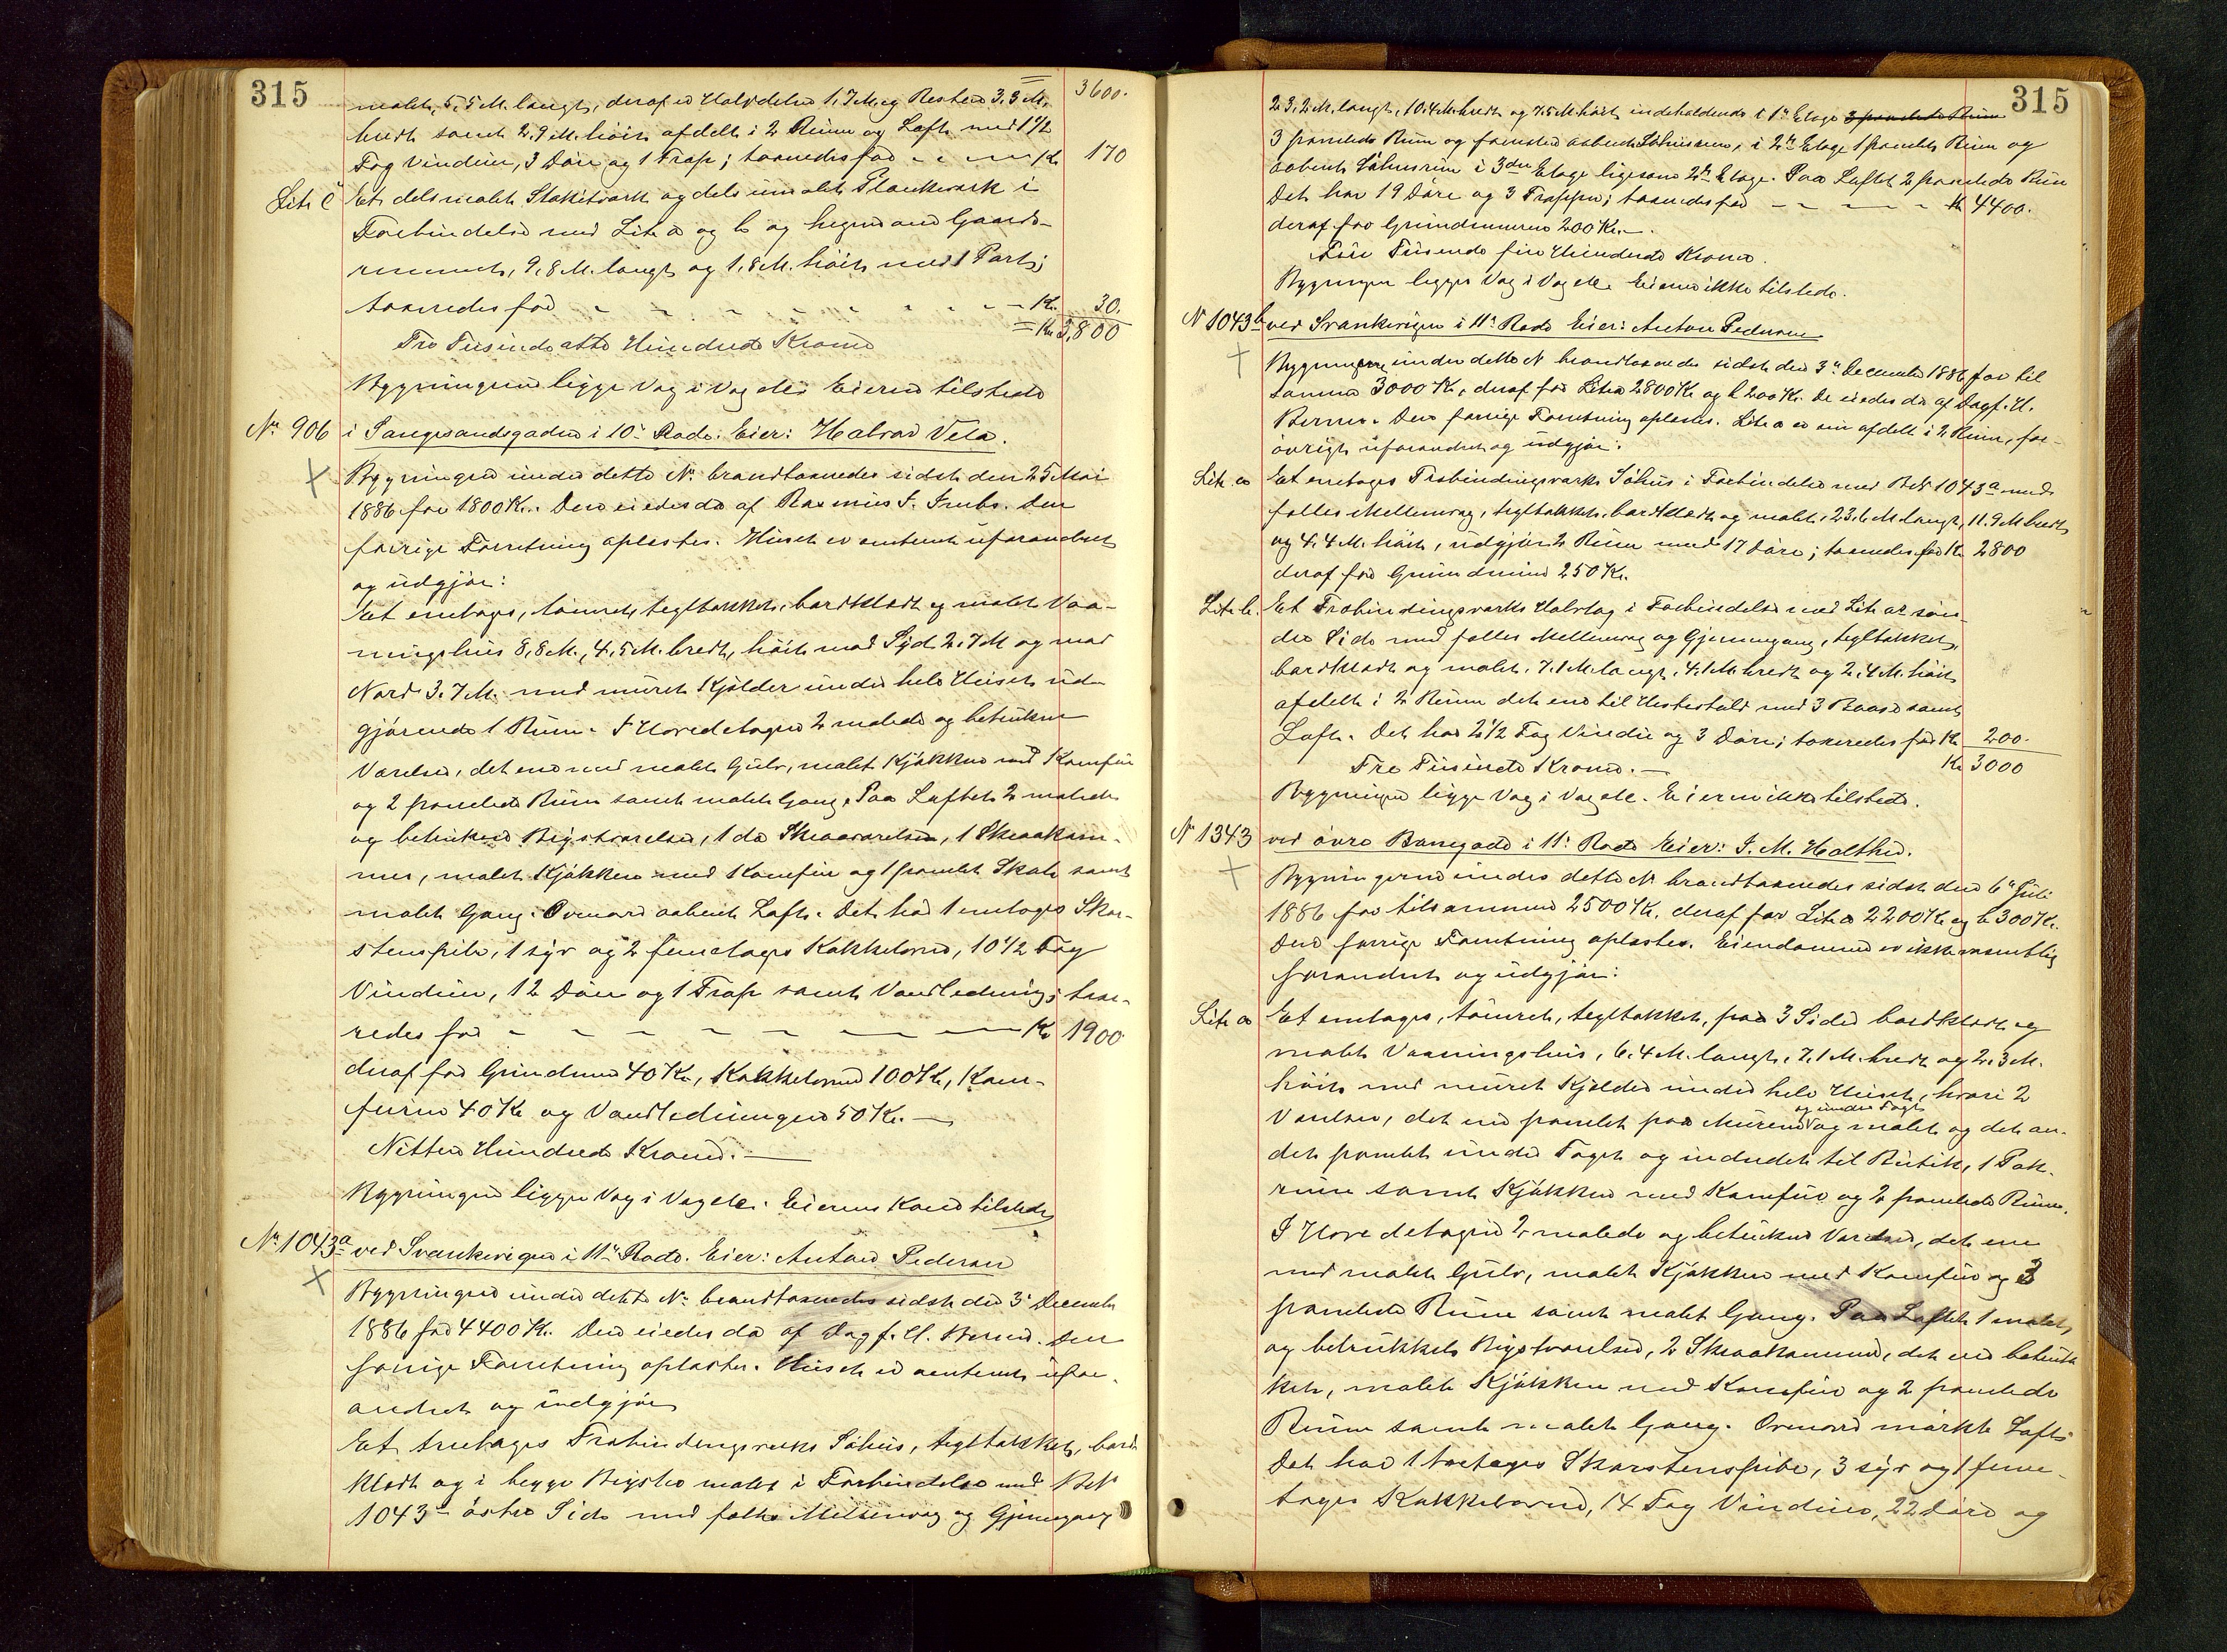 315
3600.
malet, 5,5 M. langt, deraf er Halvdelen 1,7 M. og Resten 3,3 M.
bredt samt 2,9 M. høit, afdelt i 2 Rum og Loft med 1 1/2
Fag Vinduer, 3 Døre og 1 Trap; taxeredes for - - - Kr 170
Litr c Et dels malet Stakitværk og dels umalet Plankeværk i
Forbindelse med Litr a og b og hegnende Gaards-
rummet, 9,8 M. langt og 1,8 M. høit med 1 Port;
taxeredes for - - - - - - - - Kr. 30.
= Kr 3,800
Tre Tusinde otte Hundrede Kroner
Bygningerne ligge Væg i Væg etc. Eieren tilstede
Nr. 906 i Langesandsgaden i 10de Rode. Eier: Halvar Vela.
Bygningen under dette Nr. brandtaxeredes sidst den 25 Mai
1886 for 1800 Kr. Den eiedes da af Rasmus T. . Den
forrige Forretning oplæstes. Huset er omtrent uforandret
og udgjør:
Et enetages, tømret, tegltækket, bordklædt og malet Vaa-
ningshus 8,8 M., 4,5 M. bredt, høit mod Syd 2.7 M og mod
Nord 3.7 M. med muret Kjelder under hele Huset ud-
gjørende 1 Rum. I Hovedetagen 2 malede og betrukne
Værelser, det ene med malet Gulv, malet Kjøkken med Komfur
og 2 panelede Rum samt malet Gang. Paa Loftet 2 malede
og betrukne Røistværelser, 1 do Skraaværelse, 1 Skraakam-
mer, malet Kjøkken med Komfur og 1 panelet Skab samt
malet Gang. Ovenover aabent Loft. Det har 1 enetages Skor-
stenspibe, 1 syv og 2 femetages Kakkelovne, 10 1/2 Fag
Vinduer, 12 Døre og 1 Trap samt Vandledning; taxe-
redes for - - - - - - - - Kr 1900
deraf for Grundmur 40 Kr, Kakkelovne 100 Kr, Kom-
furer 40 Kr og Vandledningen 50 Kr. —
Nitten Hundrede Kroner. —
Bygningen ligger Væg i Væg etc. Eierens Kone tilstede
Nr. 1043a ved Svankevigen i 11te Rode. Eier: Anton Pedersen
Bygningen under dette Nr. brandtaxeredes sidst den 3de December
1886 for 4400 Kr. Den eiedes da af Dagf. H. Berner. Den
forrige Forretning oplæstes. Huset er omtrent ufor-
andret og udgjør
Et treetages Trebindingsværks Søhus, tegltækket, bord-
klædt og i begge Røister malet i Forbindelse med B No
1043b østre Side med fælles Mellemvæg og Gjennemgang
315
23.2 M. langt, 10.4 M. bredt og 7.5 M. høit indeholdende i 1ste Etage 3 panelede Rum
3 panelede Rum og forøvrigt aabent Søhusrum, i 2den Etage 1 panelet Rum og
aabent Søhusrum i 3die Etage ligesom 2den Etage. Paa Loftet 2 panelede Rum
Det har 19 Døre og 3 Trapper; taxeredes for - - - - - Kr 4400.
deraf for Grundmuren 200 Kr. —
Fire Tusinde fire Hundrede Kroner.
Bygningen ligger Væg i Væg etc. Eieren ikke tilstede.
N 1043b ved Svankevigen i 11te Rode Eier: Anton Pedersen
Bygningerne under dette N brandtaxeredes sidst den 3de December 1886 for til
sammen 3000 Kr, deraf for Litr a 2800 Kr og b 200 Kr. De eiedes da af Dagf. H.
Berner. Den forrige Forretning oplæstes. Litr a er nu afdelt i 2 Rum, for-
øvrigt uforandret og udgjør:
Litr a Et enetages Trebindingsværks Søhus i Forbindelse med B No 1043a med
fælles Mellemvæg, tegltækket, bordklædt og malet, 23.6 M. langt, 11.9 M bredt
og 4.4 M. høit, udgjør 2 Rum med 17 Døre; taxeredes for Kr 2800
deraf for Grundmur 250 Kr.
Litr b. Et Trebindingsværks Halvtag i Forbindelse med Litr a's søn-
dre Side med fælles Mellemvæg og Gjennemgang, tegltækket,
bordklædt og malet, 7.1 M. langt, 4.1 M. bredt og 2.4 M. høit
afdelt i 2 Rum det ene til Hestestald med 3 Baase samt
Loft. Det har 2 1/2 Fag Vinduer og 3 Døre; taxeredes for Kr 200.
Tre Tusinde Kroner. — Kr 3000
Bygningerne ligge Væg i Væg etc. Eieren ikke tilstede.
N 1343 ved øvre Banegade i 11te Rode Eier: I. M. Holthe.
Bygningerne under dette N brandtaxeredes sidst den 6te Juli
1886 for tilsammen 2500 Kr. deraf for Litr a 2200 Kr og b 300 Kr.
Den forrige Forretning oplæstes. Eiendommen er ikke væsentlig
forandret og udgjør:
Litr a Et enetages, tømret, tegltækket, paa 3 Sider bordklædt og
malet Vaaningshus, 6.4 M. langt, 7.1 M. bredt og 2.3 M.
høit med muret Kjelder under hele Huset, hvori 2
Værelser, det ene panelet paa Murene og under Taget og malet og det an-
det panelet under Taget og indredet til Butik, 1 Pak-
rum samt Kjøkken med Komfur og 2 panelede Rum.
I Hovedetagen 2 malede og betrukne Værelser, det ene
med malet Gulv, malet Kjøkken med Komfur og 3
panelede Rum samt malet Gang. Paa Loftet 1 malet
og betrukket Røistværelse, 2 Skraakammere, det ene betruk-
ket, malet Kjøkken med Komfur og 2 panelede
Rum samt malet Gang. Ovenover mørkt Loft
Det har 1 toetages Skorstenspibe, 3 syv og 1 feme-
tages Kakkelovne, 14 Fag Vinduer, 22 Døre og